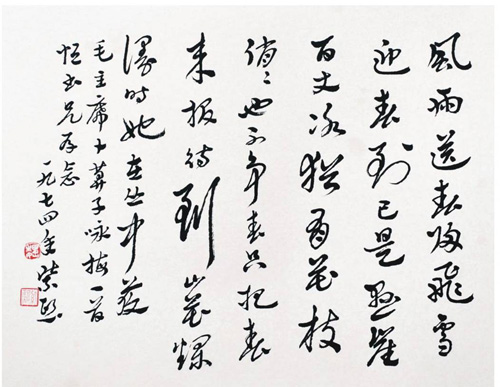 風雨送春歸飛雪
迎春到已是懸崖
百丈冰猶有花枝
俏〻也不争春只把春
来报待到山花爛
漫時她在丛中笑
毛主席卜算子咏梅一首
兄存念
一九七四年